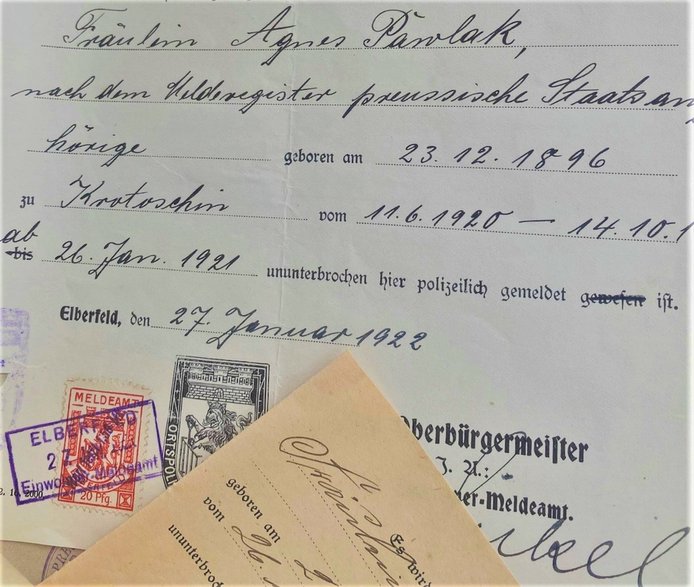 Fräulein Agnes Pawlak,
nach dem Melderegister preussische Staatsan
hörige geboren am 23. 12. 1896
zu Krotoschin vom 11. 6. 1920 — 14. 10. 1
ab
bis 26. Jan. 1921 ununterbrochen hier polizeilich gemeldet gewesen ist.
Elberfeld, den 27. Januar 1922
MELDEAMT
ELBERFELD
27
Einwohner-Meldeamt
20 Pfg.
ORTSPOL
Oberbürgermeister
J. A.:
ner-Meldeamt.
Fräulein
Es wir
geboren am 2
vom 26
ununterbroc